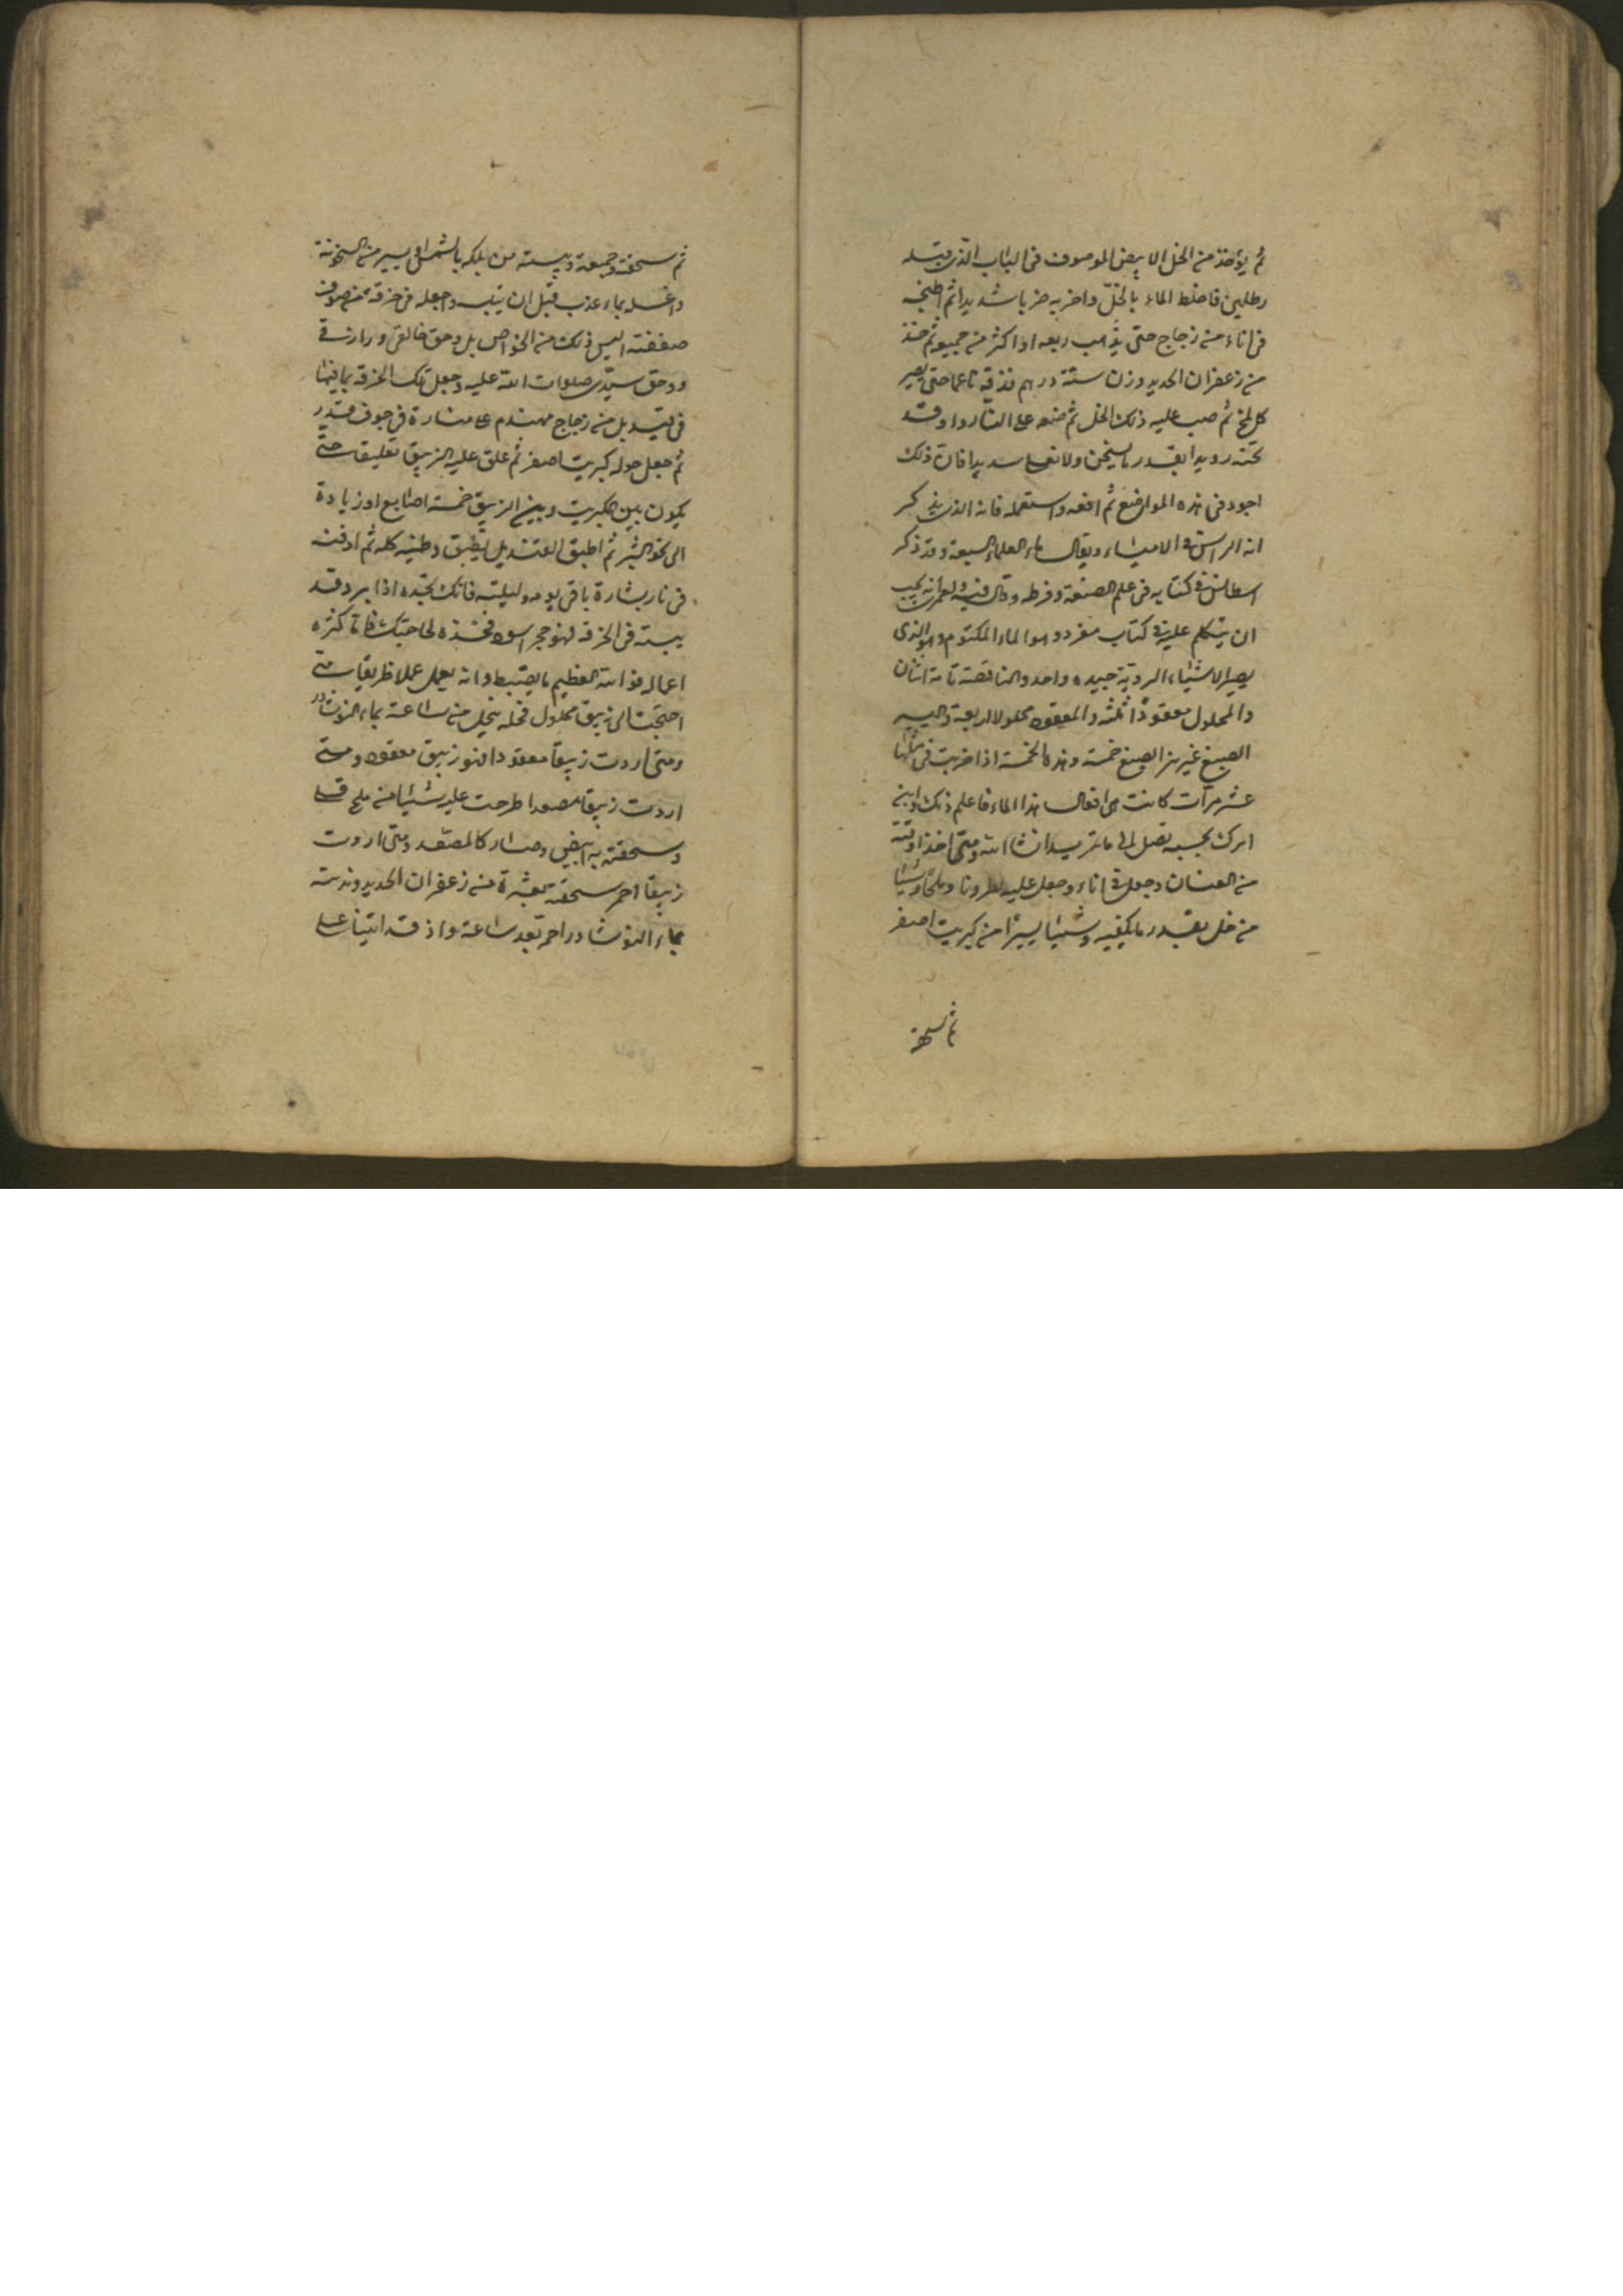 ثم يؤخذ من الخل الابيض الموصوف فى الباب الذى قبله
رطلين فاخلط الماء بالخل واضربه ضربا شديدا ثم اطبخه
فى اناء من زجاج حتى يذهب ربعه اذا كثر من جميعه ثم خذ
من زعفران الحديد وزن ستة درهم فدقه ناعما حتى يصير
كالمخ ثم صب عليه ذلك الخل ثم ضعه على النار واوقد
تحته رويدا بقدر ما يسخن ولا شديدا فان ذلك
اجود فى هذه المواضع ثم ارفعه واستعمله فانه الذى يذكر
انه الراس فى الاشياء ويقال ماء العلماء السبعة وقد ذكر
فى كتابه فى علم الصنعة وفرطه وقال فيه ولعمرى انه يجب
ان يتكلم عليه فى كتاب مفرد وهو الماء المكتوم وهو الذى
يصير الاشياء الردية جيده واحد والناقصة تامة اثنان
والمحلول معقودا ثلثه والمعقود محلولا اربعة واليسير
الصبغ غير نزر الصبغ خمسة وهذه الخمسة اذا ضربت فى مثلها
عشر مرات كانت هى افعال هذا الماء فاعلم ذلك وابن
امرك بحسبه تصل الى ما تريد ان شاء الله ومتى اخذ اوقية
من وجعل فى اناء وجعل عليه نطرونا وملحا وشيئا
من خل بقدر ما يكفيه وشيئا يسيرا من كبريت اصفر
ثم سحقه
ثم سحقه وجمعه ويبسه من بلله بالشمس او يسير من السخونة
واغسله بماء عذب قبل ان ييبس واجعله فى خرقة من صوف
صفيقته اليس ذلك من الخواص بل وحق خالقى ورازقى
وحق سيدى صلوات الله عليه وجعل تلك الخرقة بما فيها
فى قنديل من زجاج مهندم على منارة فى جوف قدر
ثم جعل حوله كبريت اصفر ثم علق عليه الزيبق تعليقا حتى
يكون بين الكبريت وبين الزيبق خمسة اصابع او زيادة
الى نحو الشبر ثم اطبق القنديل بطبق وطينه كله ثم ادفنه
فى نار باقى يومه وليلته فانك تجده اذا برد قد
يبسه فى الخرقة فهو حجر اسود فخذه لحاجتك فما اكثره
اعماله فوالله العظيم ما يضبط وانه يعمل عملا ظريفا متى
احتجت الى زيبق محلول فحله ينحل من ساعة بماء النوشادر
ومتى اردت زيبقا معقودا فهو زيبق معقود ومتى
اردت زيبقا مصعدا طرحت عليه شيئا من ملح قلى
وسحقته به ابيض وصار كالمصعد ومتى اردت
زيبقا احمر سحقته بعشرة من زعفران الحديد ونديته
بماء النوشادر احمر بعد ساعة واذ قد اتينا على